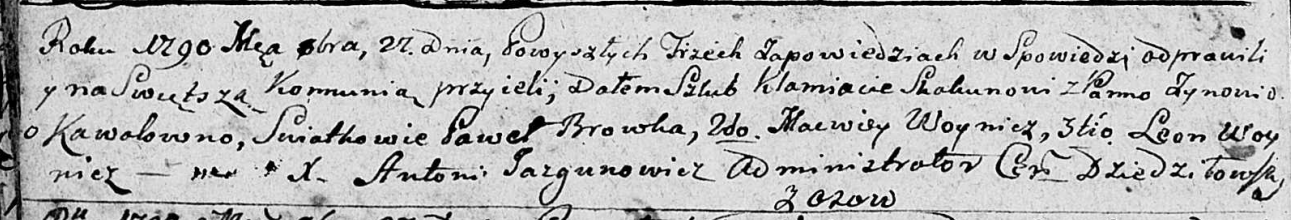 Roku 1790 Mca 8bra, 27. Dnia, Powyszłych Trzech Zapowiedziach w Spowiedzi odprawili
y na Swiętszą Kommunią przyieli; Dałem Szlub Klamiacie Skakunowi z Panno Zynowio
Kawalowno, Swiatkowie Paweł Browka, 2do. Macwiey Woynicz, 3tio Leon Woy
nicz — X. Antoni Jazgunowicz Administrator Cerk Dziedziłowsk,